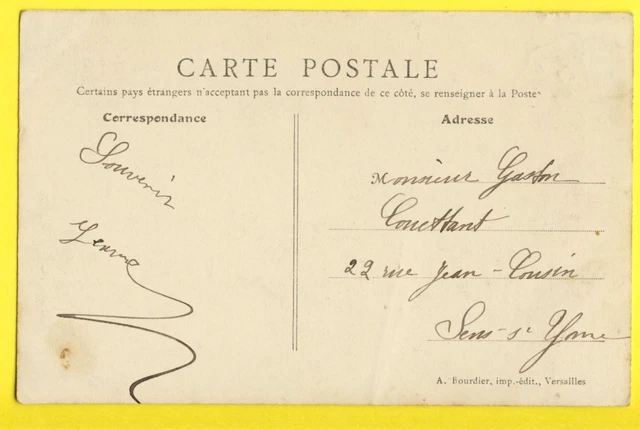 CARTE POSTALE
Certains pays étrangers n'acceptant pas la correspondance de ce côté, se renseigner à la Poste
Correspondance
Souvenir
Adresse
Monsieur Gaston
Couettant
22 rue Jean-Cousin
Sens-s/ Yonne
A. Bourdier, imp.-édit., Versailles